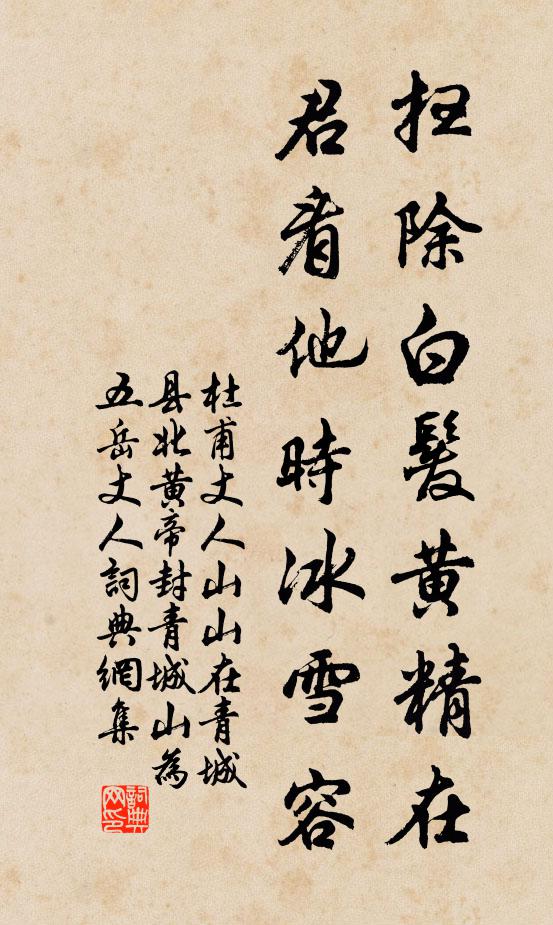 扫除白髮黄精在
君看他時冰雪容
杜甫丈人山山在青城
县北黄帝封青城山為
五岳丈人詞典網集
詞典网印